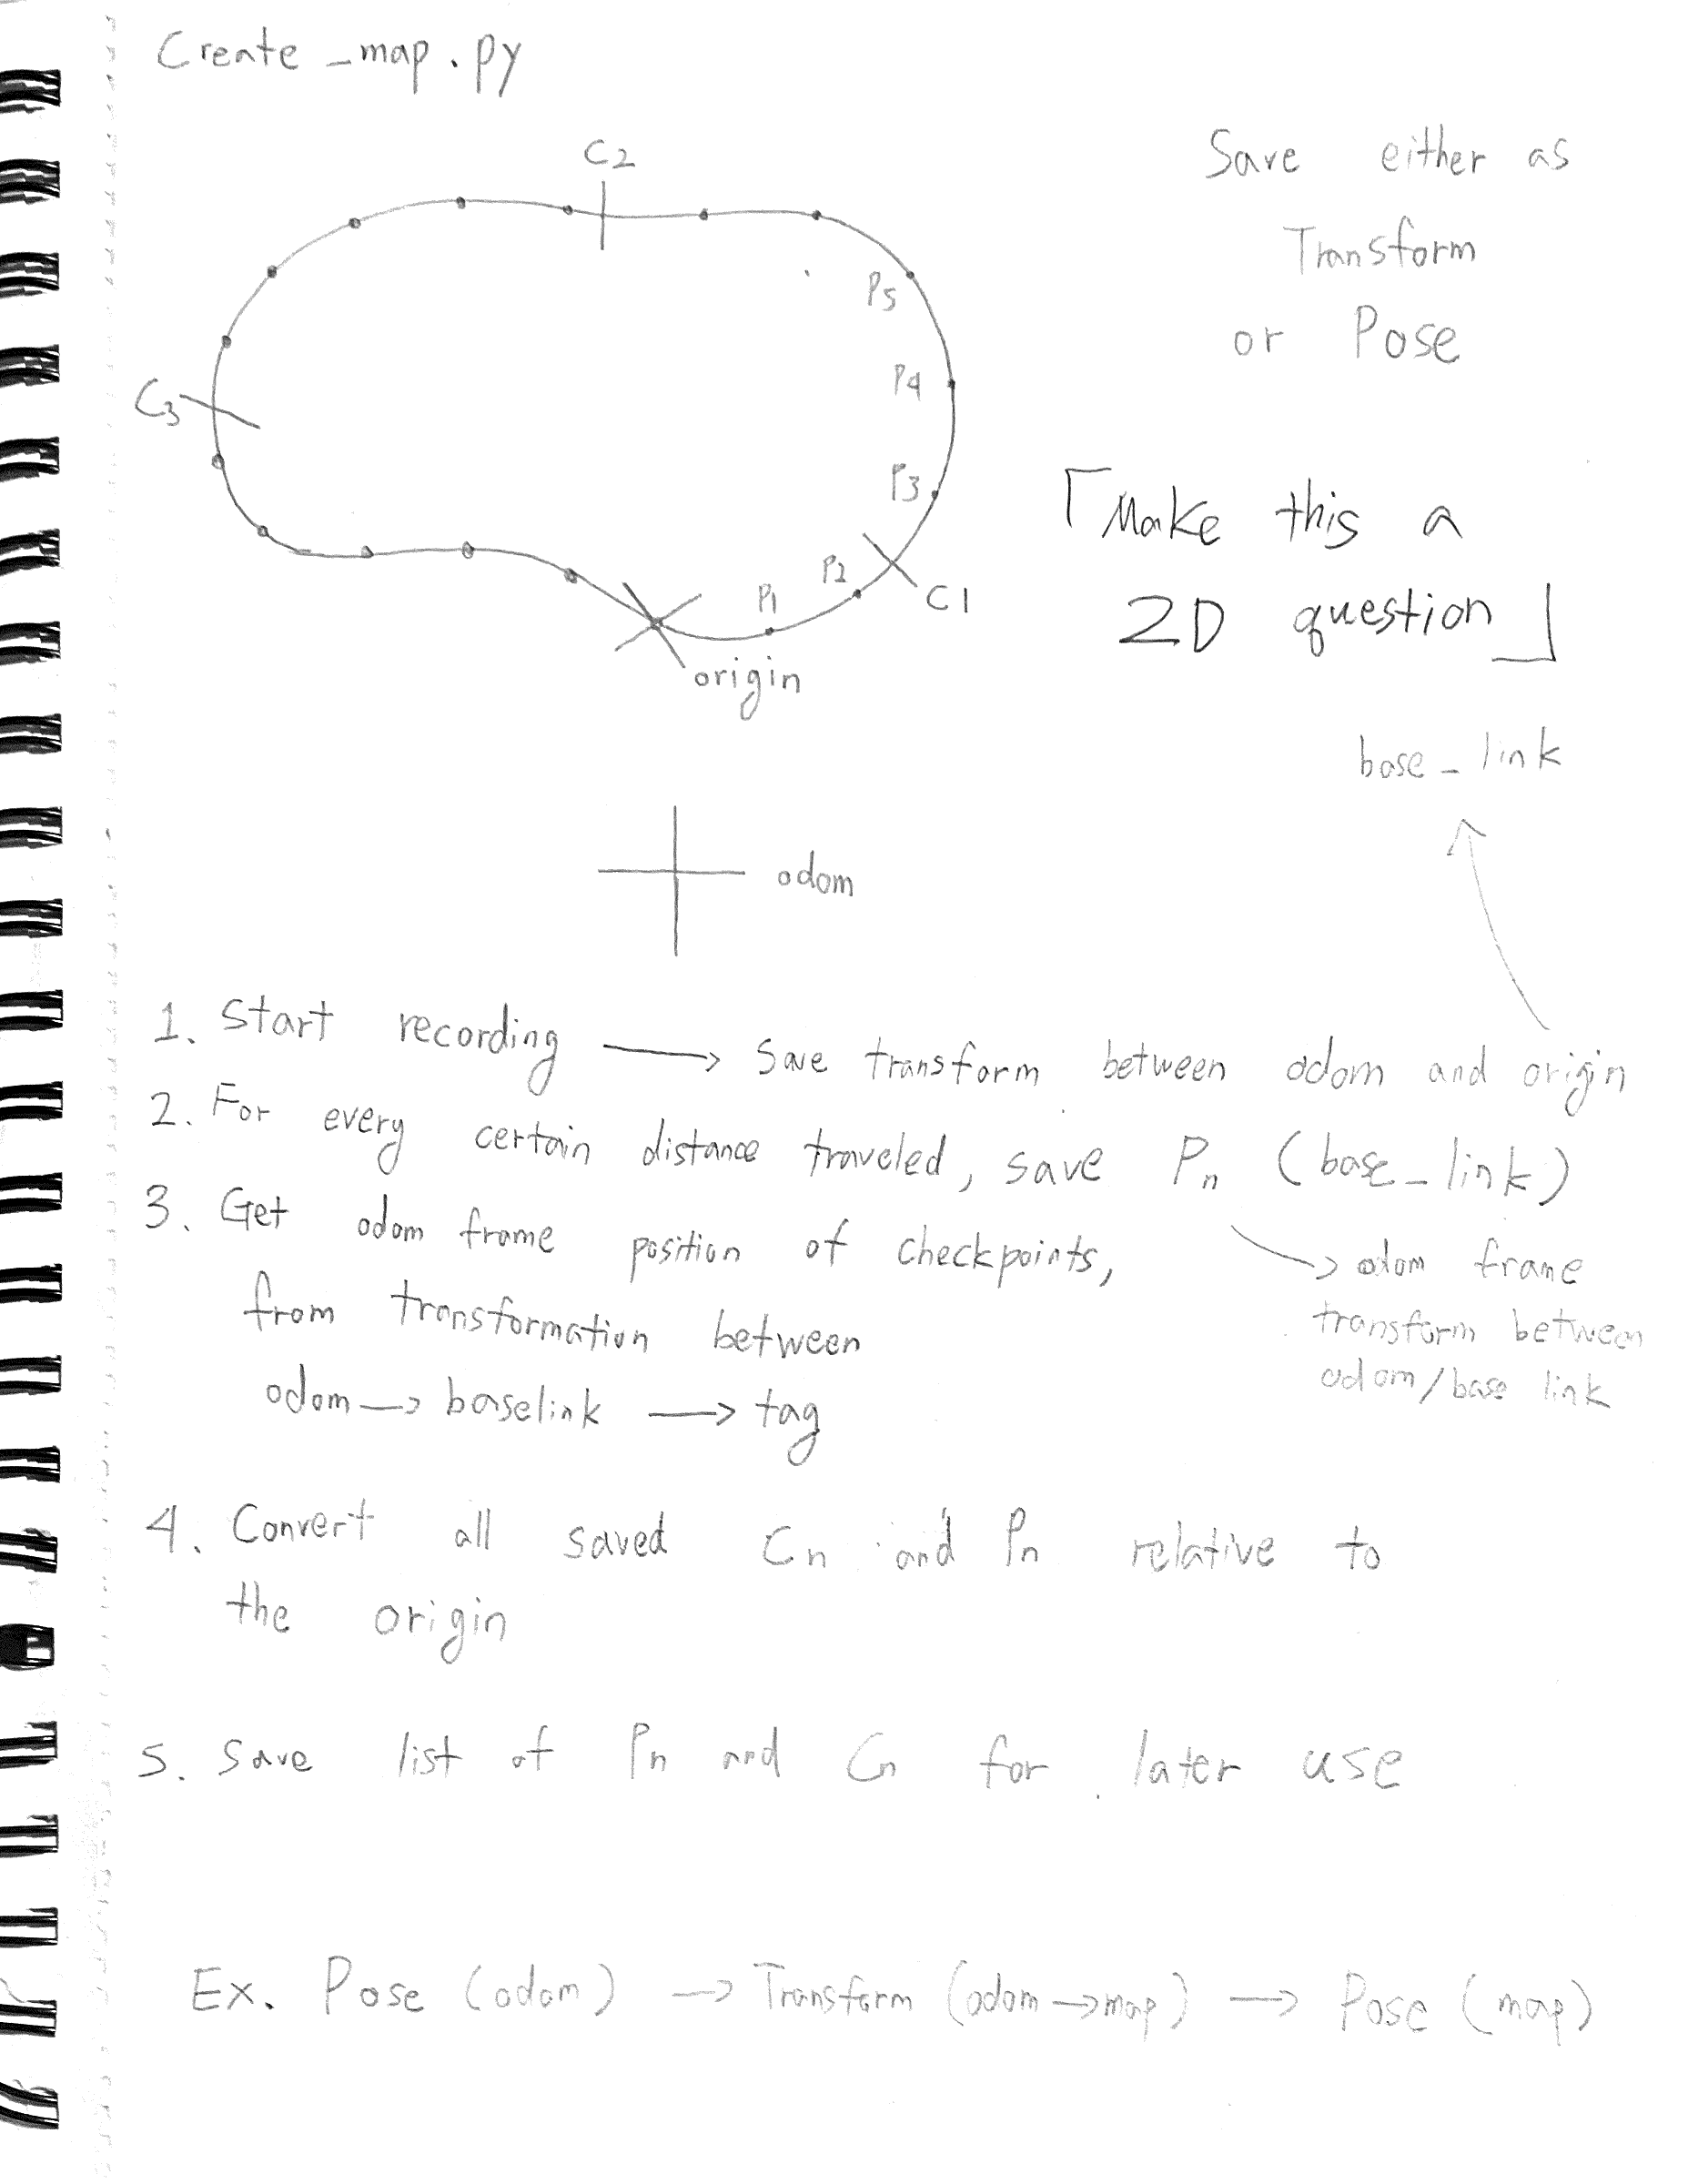 Create_map.py
C2
Save either as
Transform
or Pose
P5
P4
C3
P3
「Make this a
2D question」
P2
C1
P1
origin
base_link
odom
1. Start recording → Save transform between odom and origin
2. For every certain distance traveled, save Pn (base_link)
3. Get odom frame position of checkpoints,
from transformation between
odom → baselink → tag
→ odom frame
transform between
odom/base link
4. Convert all saved Cn and Pn relative to
the origin
5. Save list of Pn and Cn for later use
Ex. Pose (odom) → Transform (odom→map) → Pose (map)